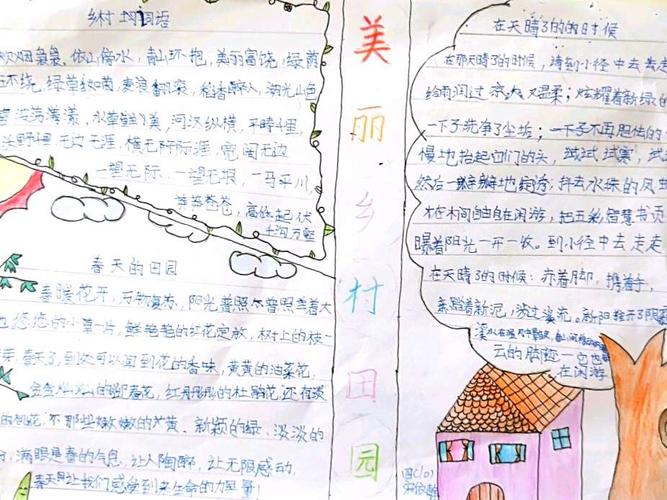 乡村的词语
炊烟袅袅，依山傍水，青山环抱，美丽富饶，绿荫
环绕，绿草如茵，麦浪翻滚，稻香醉人，湖光山色
碧波荡漾，水草鲜美，河汊纵横，平畴千里，
沃野千里，无边无涯，横无际涯，宽阔无边
一望无际，一望无垠，一马平川，
莽莽苍苍，高低起伏
千沟万壑
春天的田园
春暖花开，万物复苏，阳光普照
悠悠的小草一片，鲜艳艳的红花定放，树上的枝
春天了，到处可以闻到花的香味，黄黄的油菜花，
金灿灿的迎春花，红彤彤的杜鹃花，还有淡
的桃花，不那些嫩嫩的草黄、新颖的绿，淡淡的
满眼是春的气息，让人陶醉，让无限感动，
春天 让我们感受到 生命的力量！
美丽乡村田园
在天晴了的的时候
在那天晴了的时候，请到小径中去走走
给雨润过 凉爽又温柔；炫耀着新绿的
一下子洗净了尘垢；一下子不再胆怯的
慢地抬起它们的头，试试寒，试
然后一瓣瓣地绽透；抖去水珠的凤
木间自由自在闲游，把五彩智慧书页
曝着阳光一开一收。到小径中去走走
在天晴了的时候：赤着脚，携着手，
踏着新泥，淌过溪流。新阳推开了阴霾
云的脚迹一它也
在闲游